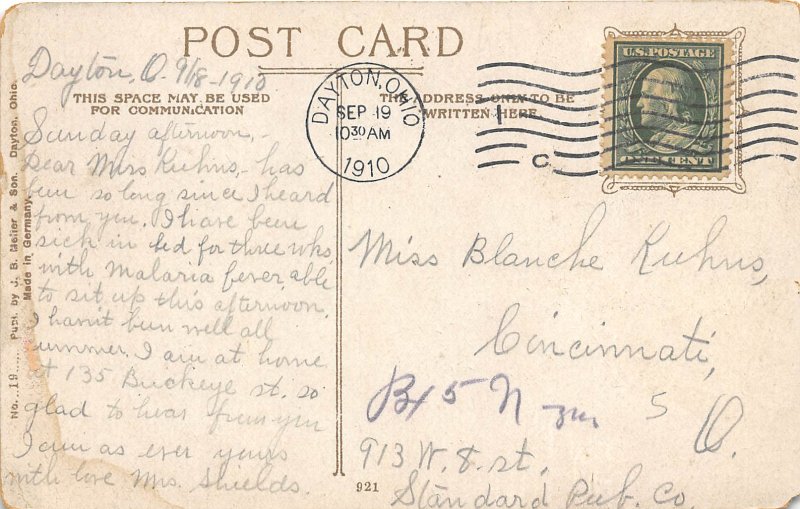 POST CARD
Dayton, O. 9/18-1910
THIS SPACE MAY BE USED
FOR COMMUNICATION
Sunday afternoon,-
Dear Miss Kuhns,- has
been so long since I heard
from you. I have been
sick in bed for three wks
with Malaria fever, able
to sit up this afternoon.
I havn't been well all
summer. I am at home
at 135 Buckeye st. so
glad to hear from you
I am as ever yours
with love Mrs. Shields.
No. 19 Publ. by J. B. Meiler & Son, Dayton, Ohio.
Made in Germany.
DAYTON, OHIO
SEP 19
10 30 AM
1910
THE ADDRESS ONLY TO BE
WRITTEN HERE
1
C
U.S. POSTAGE
ONE CENT
Miss Blanche Kuhns,
Cincinnati,
5
O.
913 W. 8. st.
Standard Pub. Co.
921